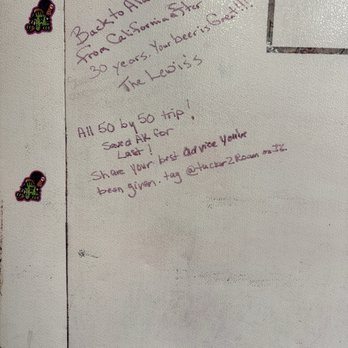 Back to
from California after
30 years. Your beer is Great!!!
The Lewis's
All 50 by 50 trip!
Saved AK for
Last!
Share your best advice you've
been given. tag @tucker2Roam on IG